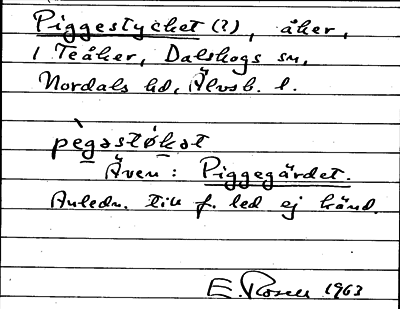 Piggestycket (?), åker,
i Teåker, Dalskogs sn,
Nordals hd, Älvsb. l.
pègəstøkət
Även: Piggegärdet.
Anledn. till f. led ej känd.
E. Rosell 1963